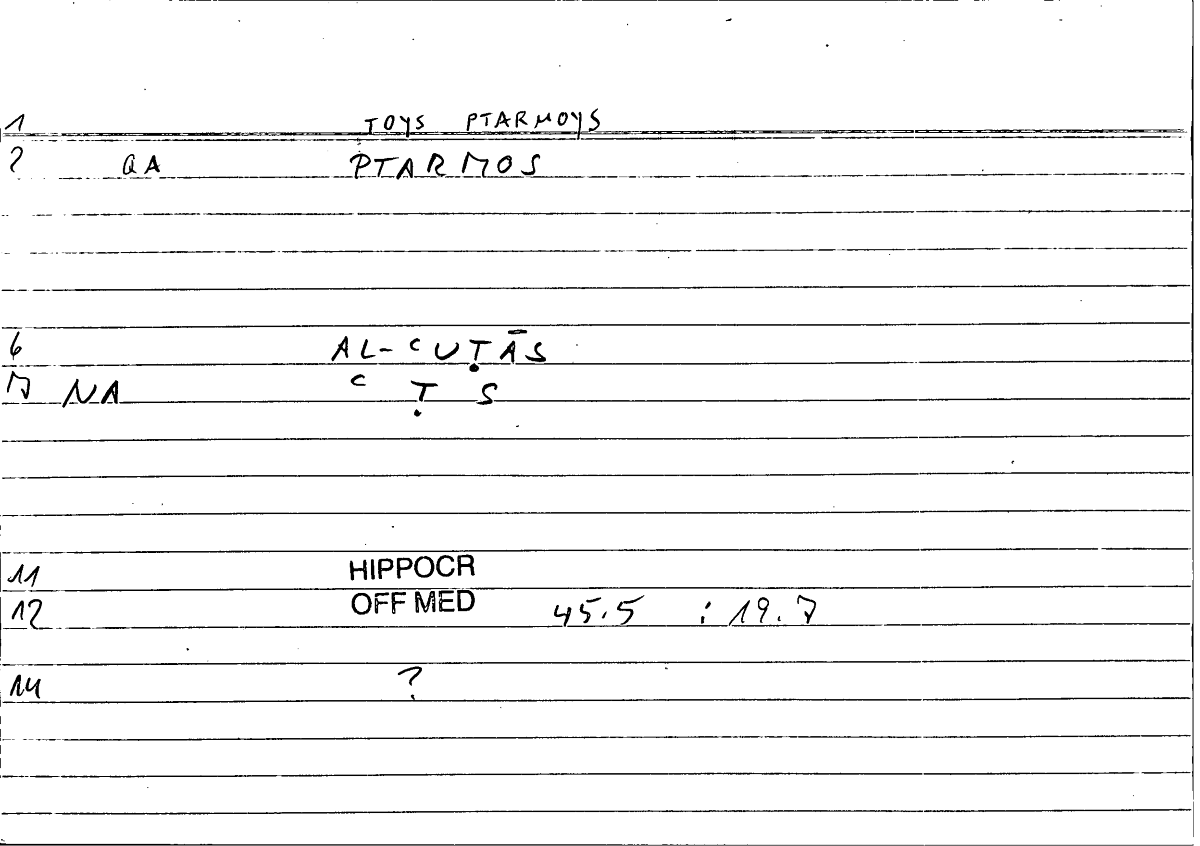 1 TOYS PTARMOYS
2 QA PTARMOS
6 AL-ʿUṬĀS
7 NA ʿ Ṭ S
11 HIPPOCR
12 OFF MED 45.5 : 19.7
14 ?